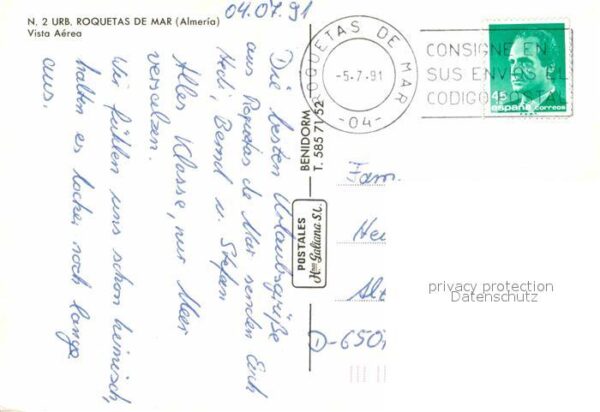 N. 2 URB. ROQUETAS DE MAR (Almería)
Vista Aérea
04.07.91
Die besten Urlaubsgrüße
aus Roquetas de Mar senden Euch
Hedi, Bernd u. Stefan
Alles Klasse, nur Meer
versalzen.
Wir fühlen uns schon heimisch,
halten es locker noch lange
aus.
BENIDORM
T. 585 71 52
POSTALES
Hnos Galiana S.L.
ROQUETAS DE MAR
-5-7-91
-04-
CONSIGNE EN
SUS ENVIOS EL
CODIGO POSTAL
45
españa correos
Fam.
He
Al
D-650
privacy protection
Datenschutz